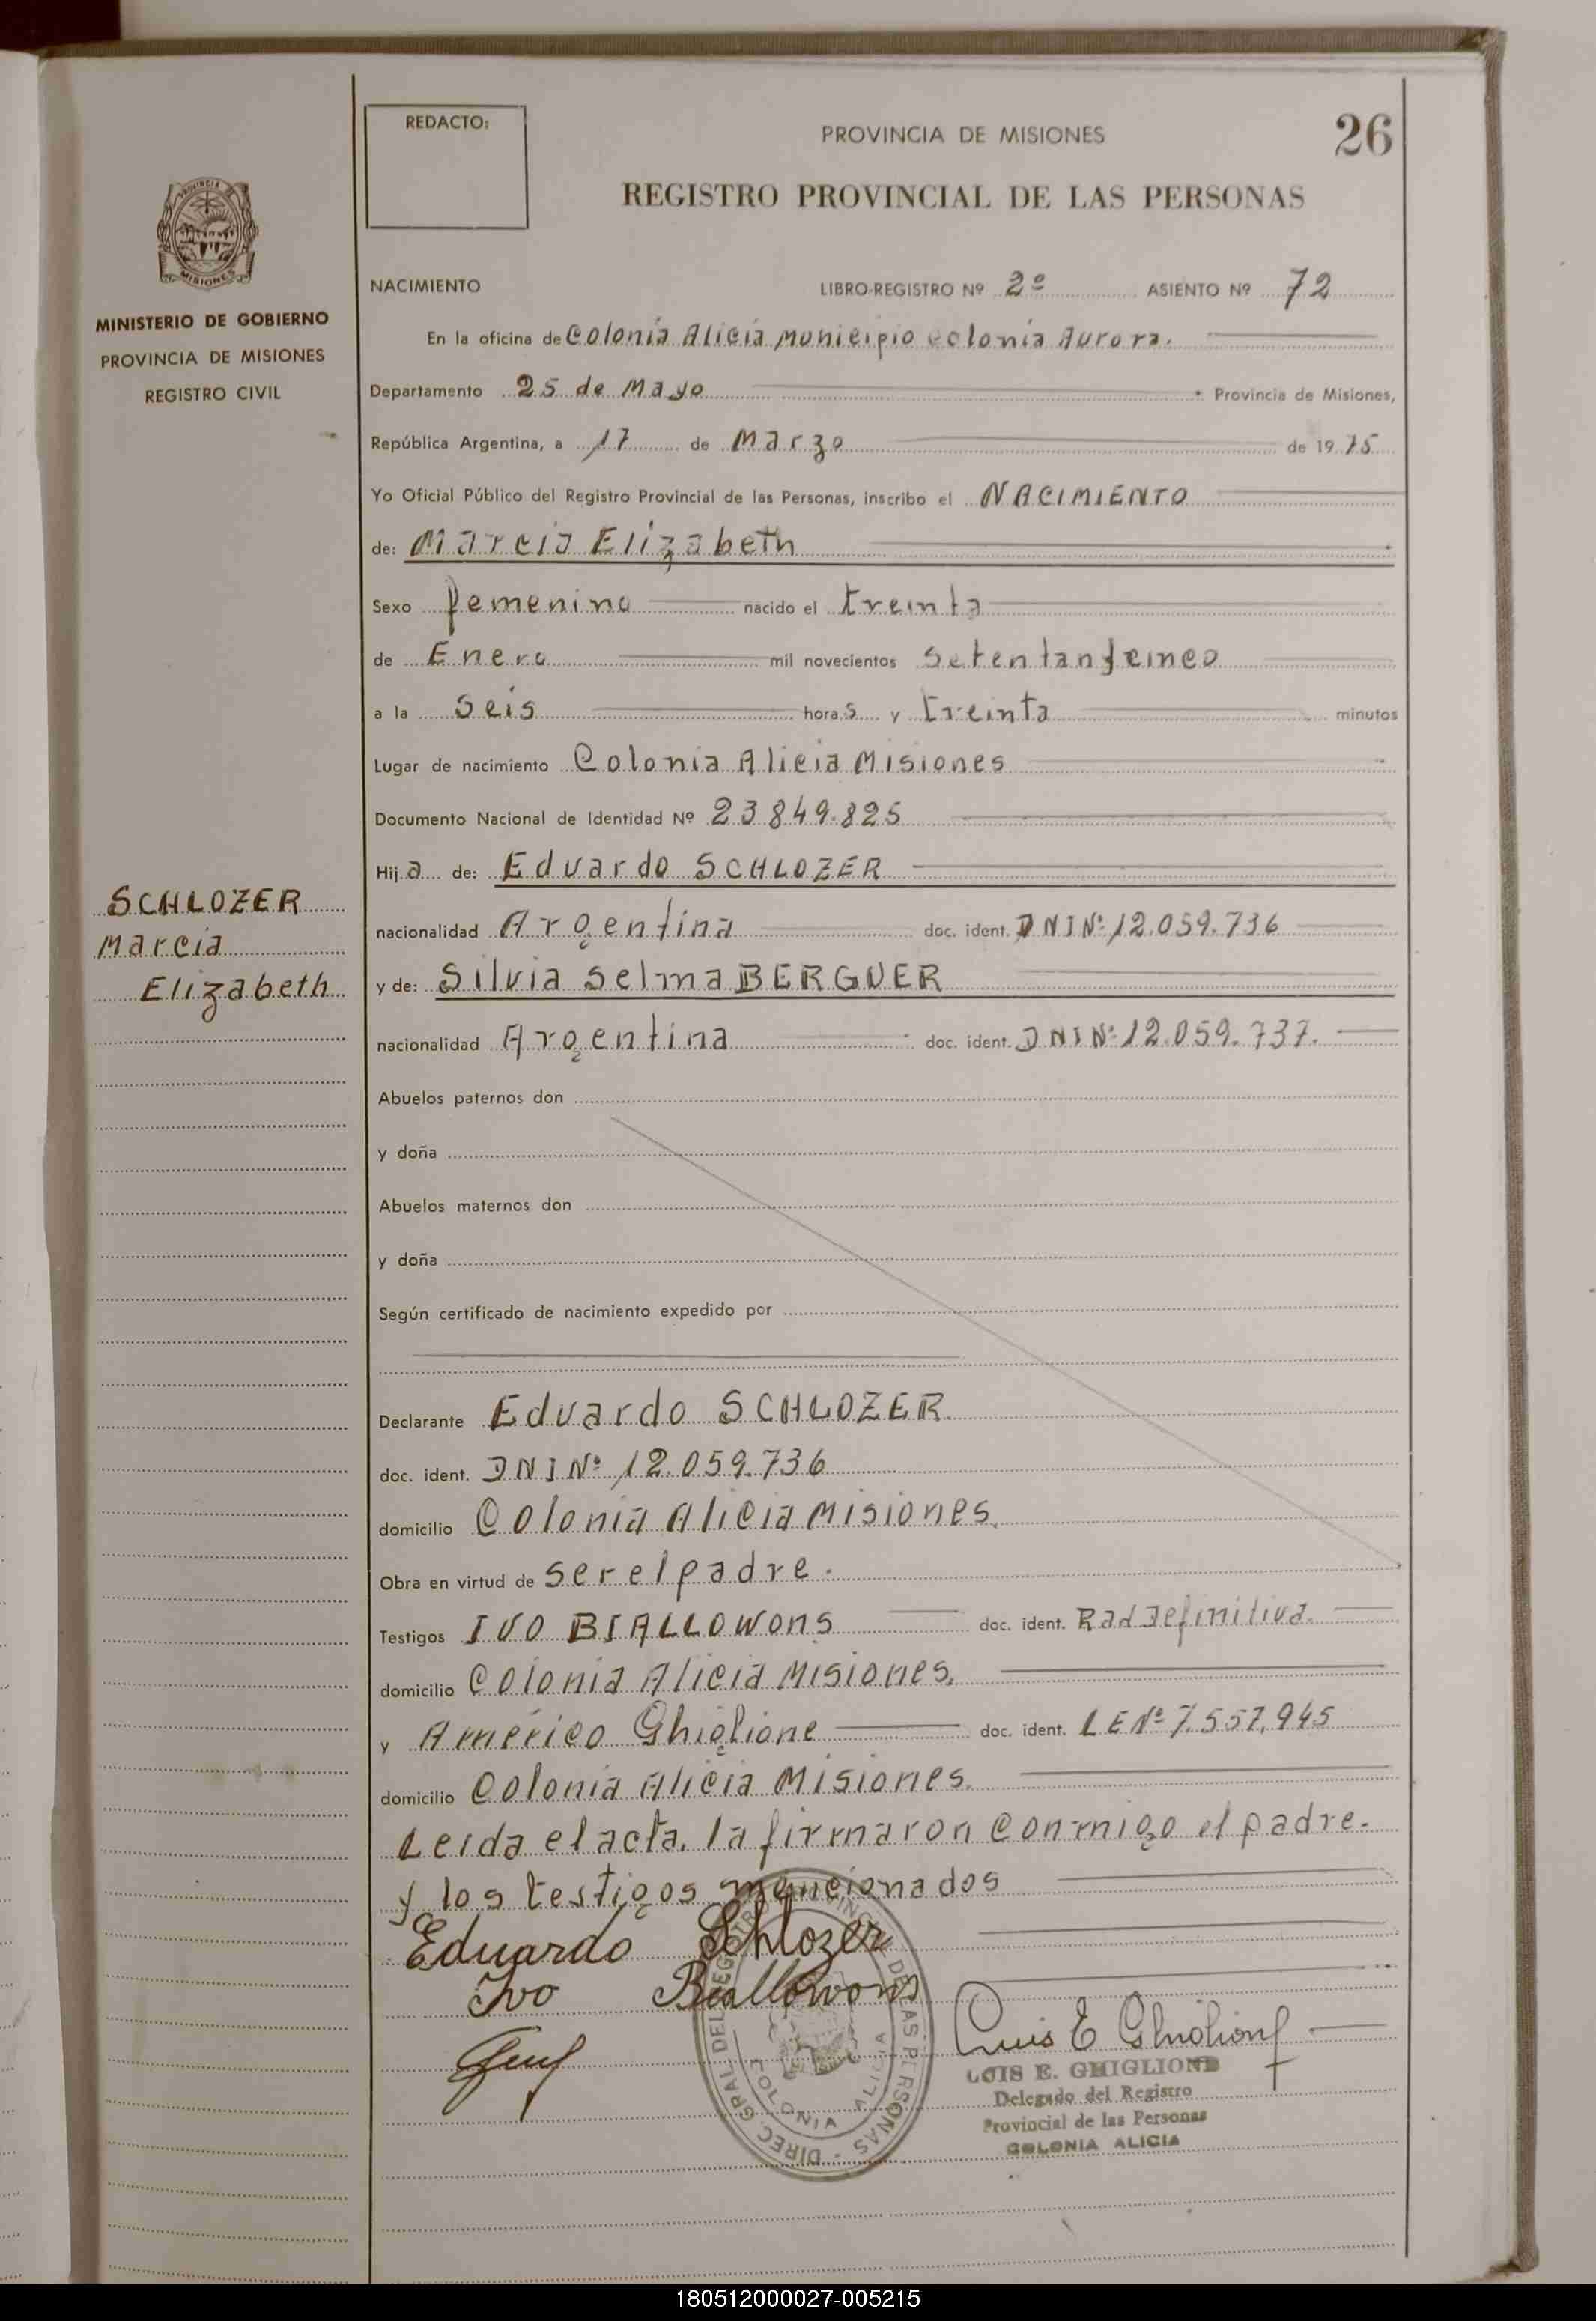 REDACTO:
PROVINCIA DE MISIONES
26
REGISTRO PROVINCIAL DE LAS PERSONAS
MISIONES
MINISTERIO DE GOBIERNO
PROVINCIA DE MISIONES
REGISTRO CIVIL
NACIMIENTO LIBRO-REGISTRO Nº 2º ASIENTO Nº 72
En la oficina de Colonia Alicia Municipio colonia Aurora.
Departamento 25 de Mayo Provincia de Misiones,
República Argentina, a 17 de Marzo de 1975
Yo Oficial Público del Registro Provincial de las Personas, inscribo el NACIMIENTO
de: Marcia Elizabeth
Sexo femenino nacido el treinta
de Enero mil novecientos setentanycinco
a la seis horas y treinta minutos
Lugar de nacimiento Colonia Alicia Misiones
Documento Nacional de Identidad Nº 23849.825
Hija de: Eduardo SCHLOZER
SCHLOZER
Marcia
Elizabeth
nacionalidad Argentina doc. ident. DNI Nº 12.059.736
y de: Silvia Selma BERGUER
nacionalidad Argentina doc. ident. DNI Nº 12.059.737.
Abuelos paternos don
y doña
Abuelos maternos don
y doña
Según certificado de nacimiento expedido por
Declarante Eduardo SCHLOZER.
doc. ident. DNI Nº 12.059.736
domicilio Colonia Alicia Misiones.
Obra en virtud de ser el padre.
Testigos IVO BIALLOWONS doc. ident. Rad Definitiva.
domicilio Colonia Alicia Misiones.
y Américo Ghiglione doc. ident. LE Nº 7.557.945
domicilio Colonia Alicia Misiones.
Leida el acta, la firmaron conmigo el padre.
y los testigos mencionados
Eduardo Schlozer
Ivo Biallowons
Luis E Ghiglione
LUIS E. GHIGLIONE
Delegado del Registro
Provincial de las Personas
COLONIA ALICIA
DIREC. GRAL DEL REGISTRO PROVINCIAL DE LAS PERSONAS
COLONIA ALICIA
180512000027-005215